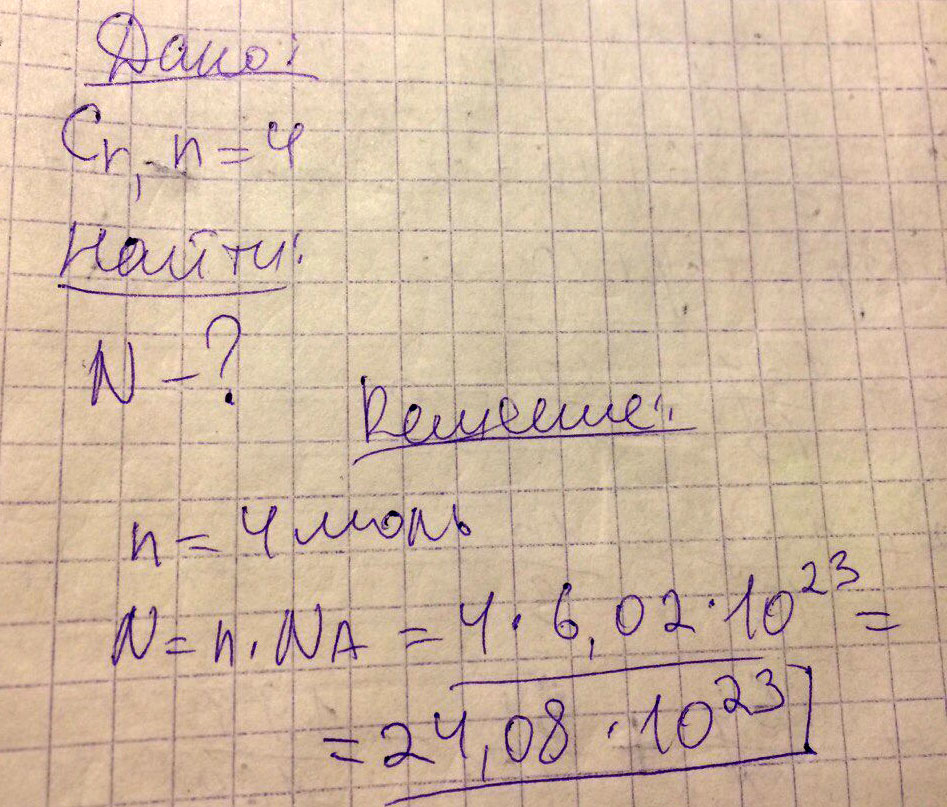 Дано:
Cr, n = 4
Найти:
N - ?
Решение:
n = 4 моль
N = n · NA = 4 · 6,02 · 10²³ =
= 24,08 · 10²³